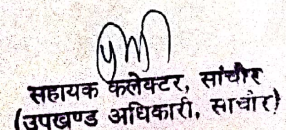 सहायक कलेक्टर, सांचौर
(उपखण्ड अधिकारी, सांचोर)